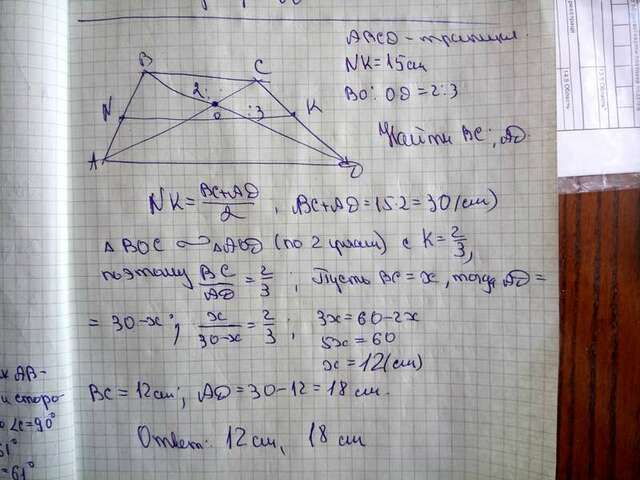 ABCD - трапеция
NK = 15 см
BO : OD = 2:3
Найти BC; AD
B
C
2
:3
O
N
K
A
D
NK = (BC+AD)/2 , BC+AD = 15·2 = 30 (см)
△ BOC ∾ △AOD (по 2 углам) с K = 2/3,
поэтому BC/AD = 2/3 ; Пусть BC = x, тогда AD =
= 30-x; x/(30-x) = 2/3 ; 3x = 60-2x
5x = 60
x = 12 (см)
BC = 12 см; AD = 30-12 = 18 см.
Ответ: 12 см, 18 см
AB-
и сторо-
∠C=90°
61°
=61°